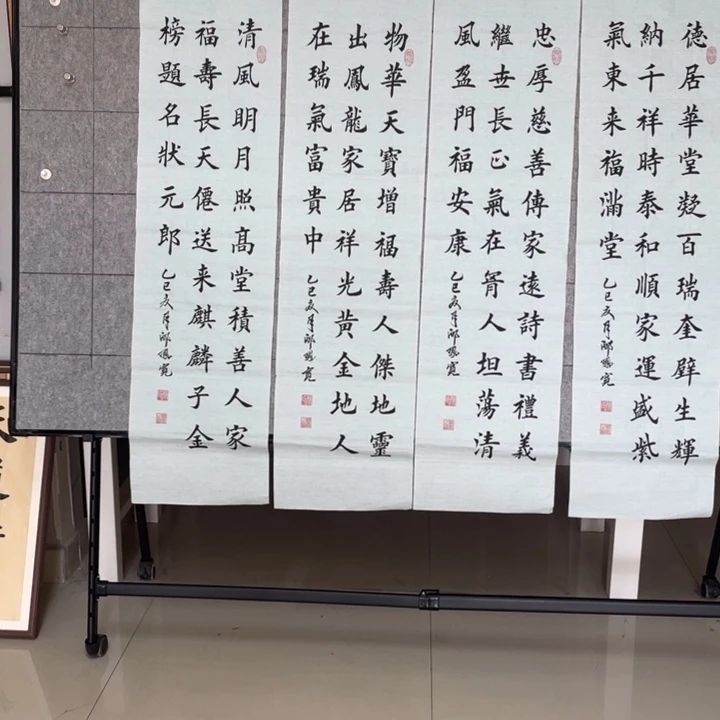 德居華堂凝百瑞奎壁生輝
納千祥時泰和順家運盛紫
氣東来福滿堂
乙巳夏月邱
忠厚慈善傳家遠詩書禮義
繼世長正氣在胥人坦蕩清
風盈門福安康
乙巳夏月邱
物華天寶增福壽人傑地靈
出鳳龍家居祥光黃金地人
在瑞氣富貴中
乙巳夏月邱
清風明月照髙堂積善人家
福壽長天僊送来麒麟子金
榜題名狀元郎
乙巳夏月邱